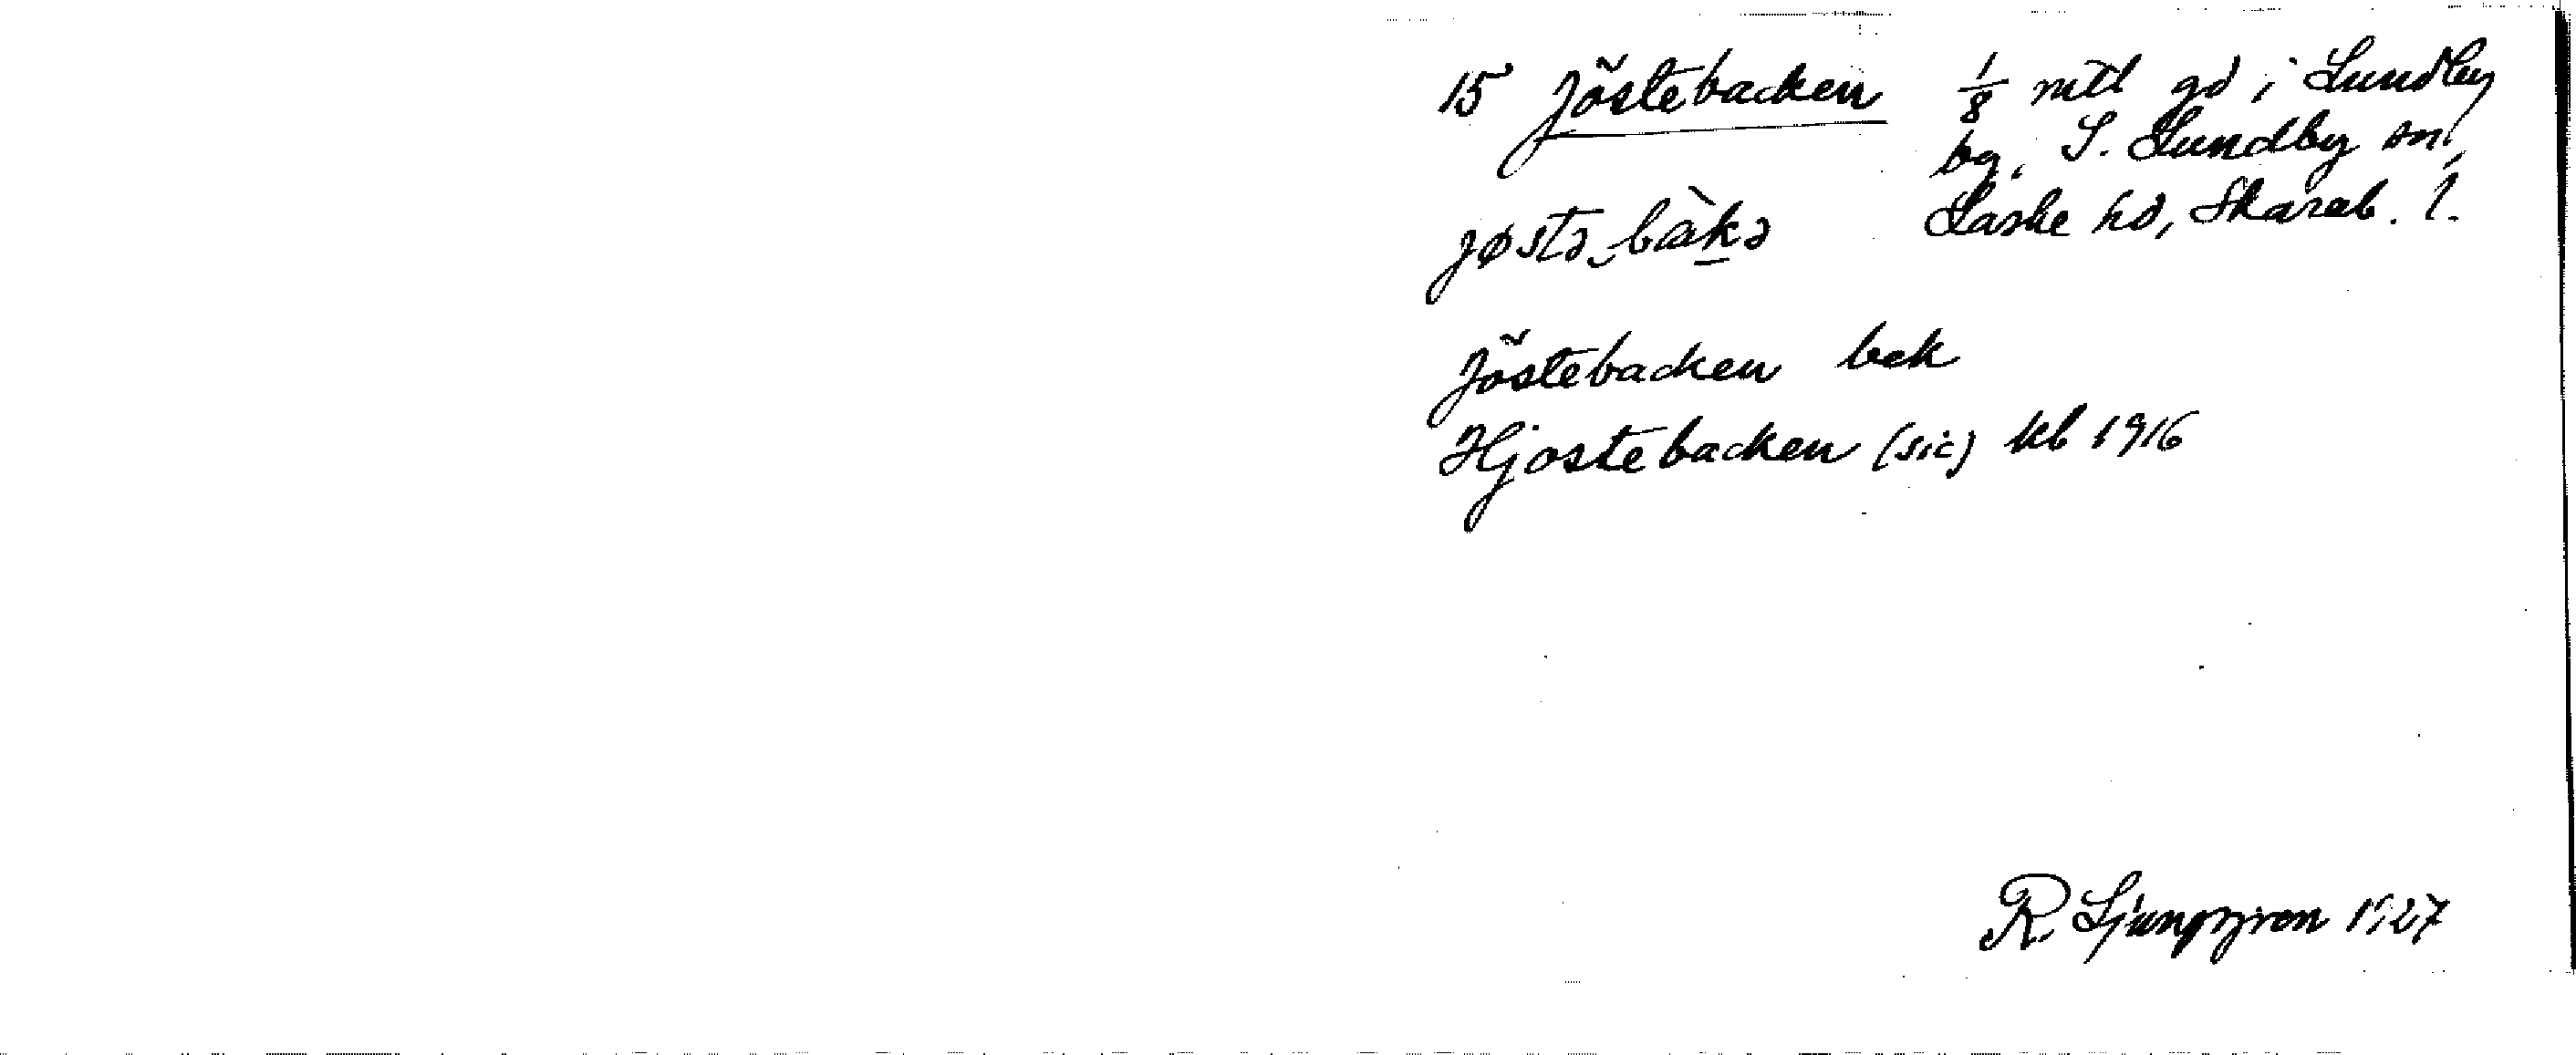 15 Jöstebacken 1/8 mtl gd i Lundby
by, S. Lundby sn,
Laske hd, Skarab. l.
jøstə bàkə
Jöstebacken bek
Hjostebacken (sic) kb 1916
R. Ljunggren 1927